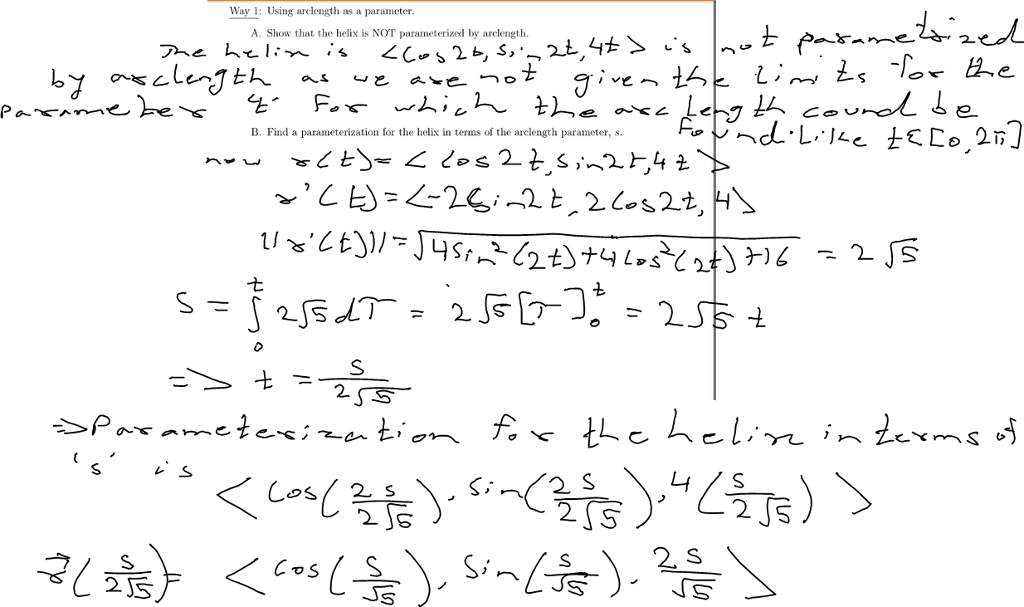 Way 1: Using arclength as a parameter.
A. Show that the helix is NOT parameterized by arclength.
The helix is <Cos2t, Sin2t, 4t> is not parametrized
by arclength as we are not given the limits for the
parameter 't' For which the arc length cound be
Found. Like t∈[0,2π]
B. Find a parameterization for the helix in terms of the arclength parameter, s.
now r(t)= <Cos2t, Sin2t, 4t>
r'(t)=<-2Sin2t, 2Cos2t, 4>
||r'(t)||=√(4Sin²(2t)+4Cos²(2t)+16) = 2√5
S = ∫₀ᵗ 2√5 dT = 2√5 [T]₀ᵗ = 2√5 t
=> t = S/(2√5)
=> Parameterization for the helix in terms of
's' is
<Cos(2s/(2√5)), Sin(2s/(2√5)), 4(s/(2√5))>
r⃗(s/(2√5)) = <Cos(s/√5), Sin(s/√5), 2s/√5>